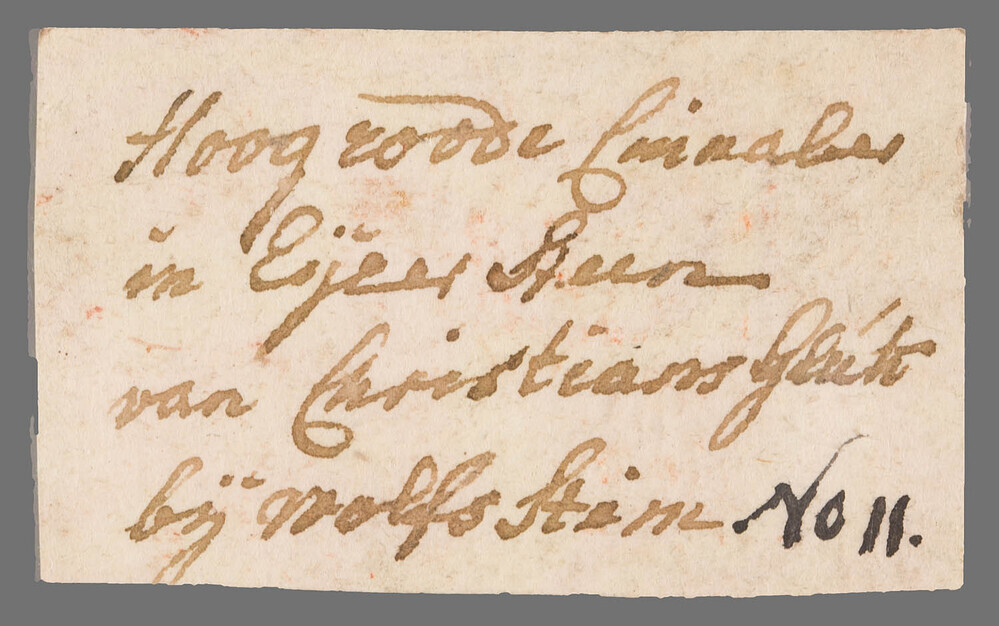 Hoog roode Cinnaber
in Eijser Steen
van Christians Glük
bij Wolfs Stein No 11.